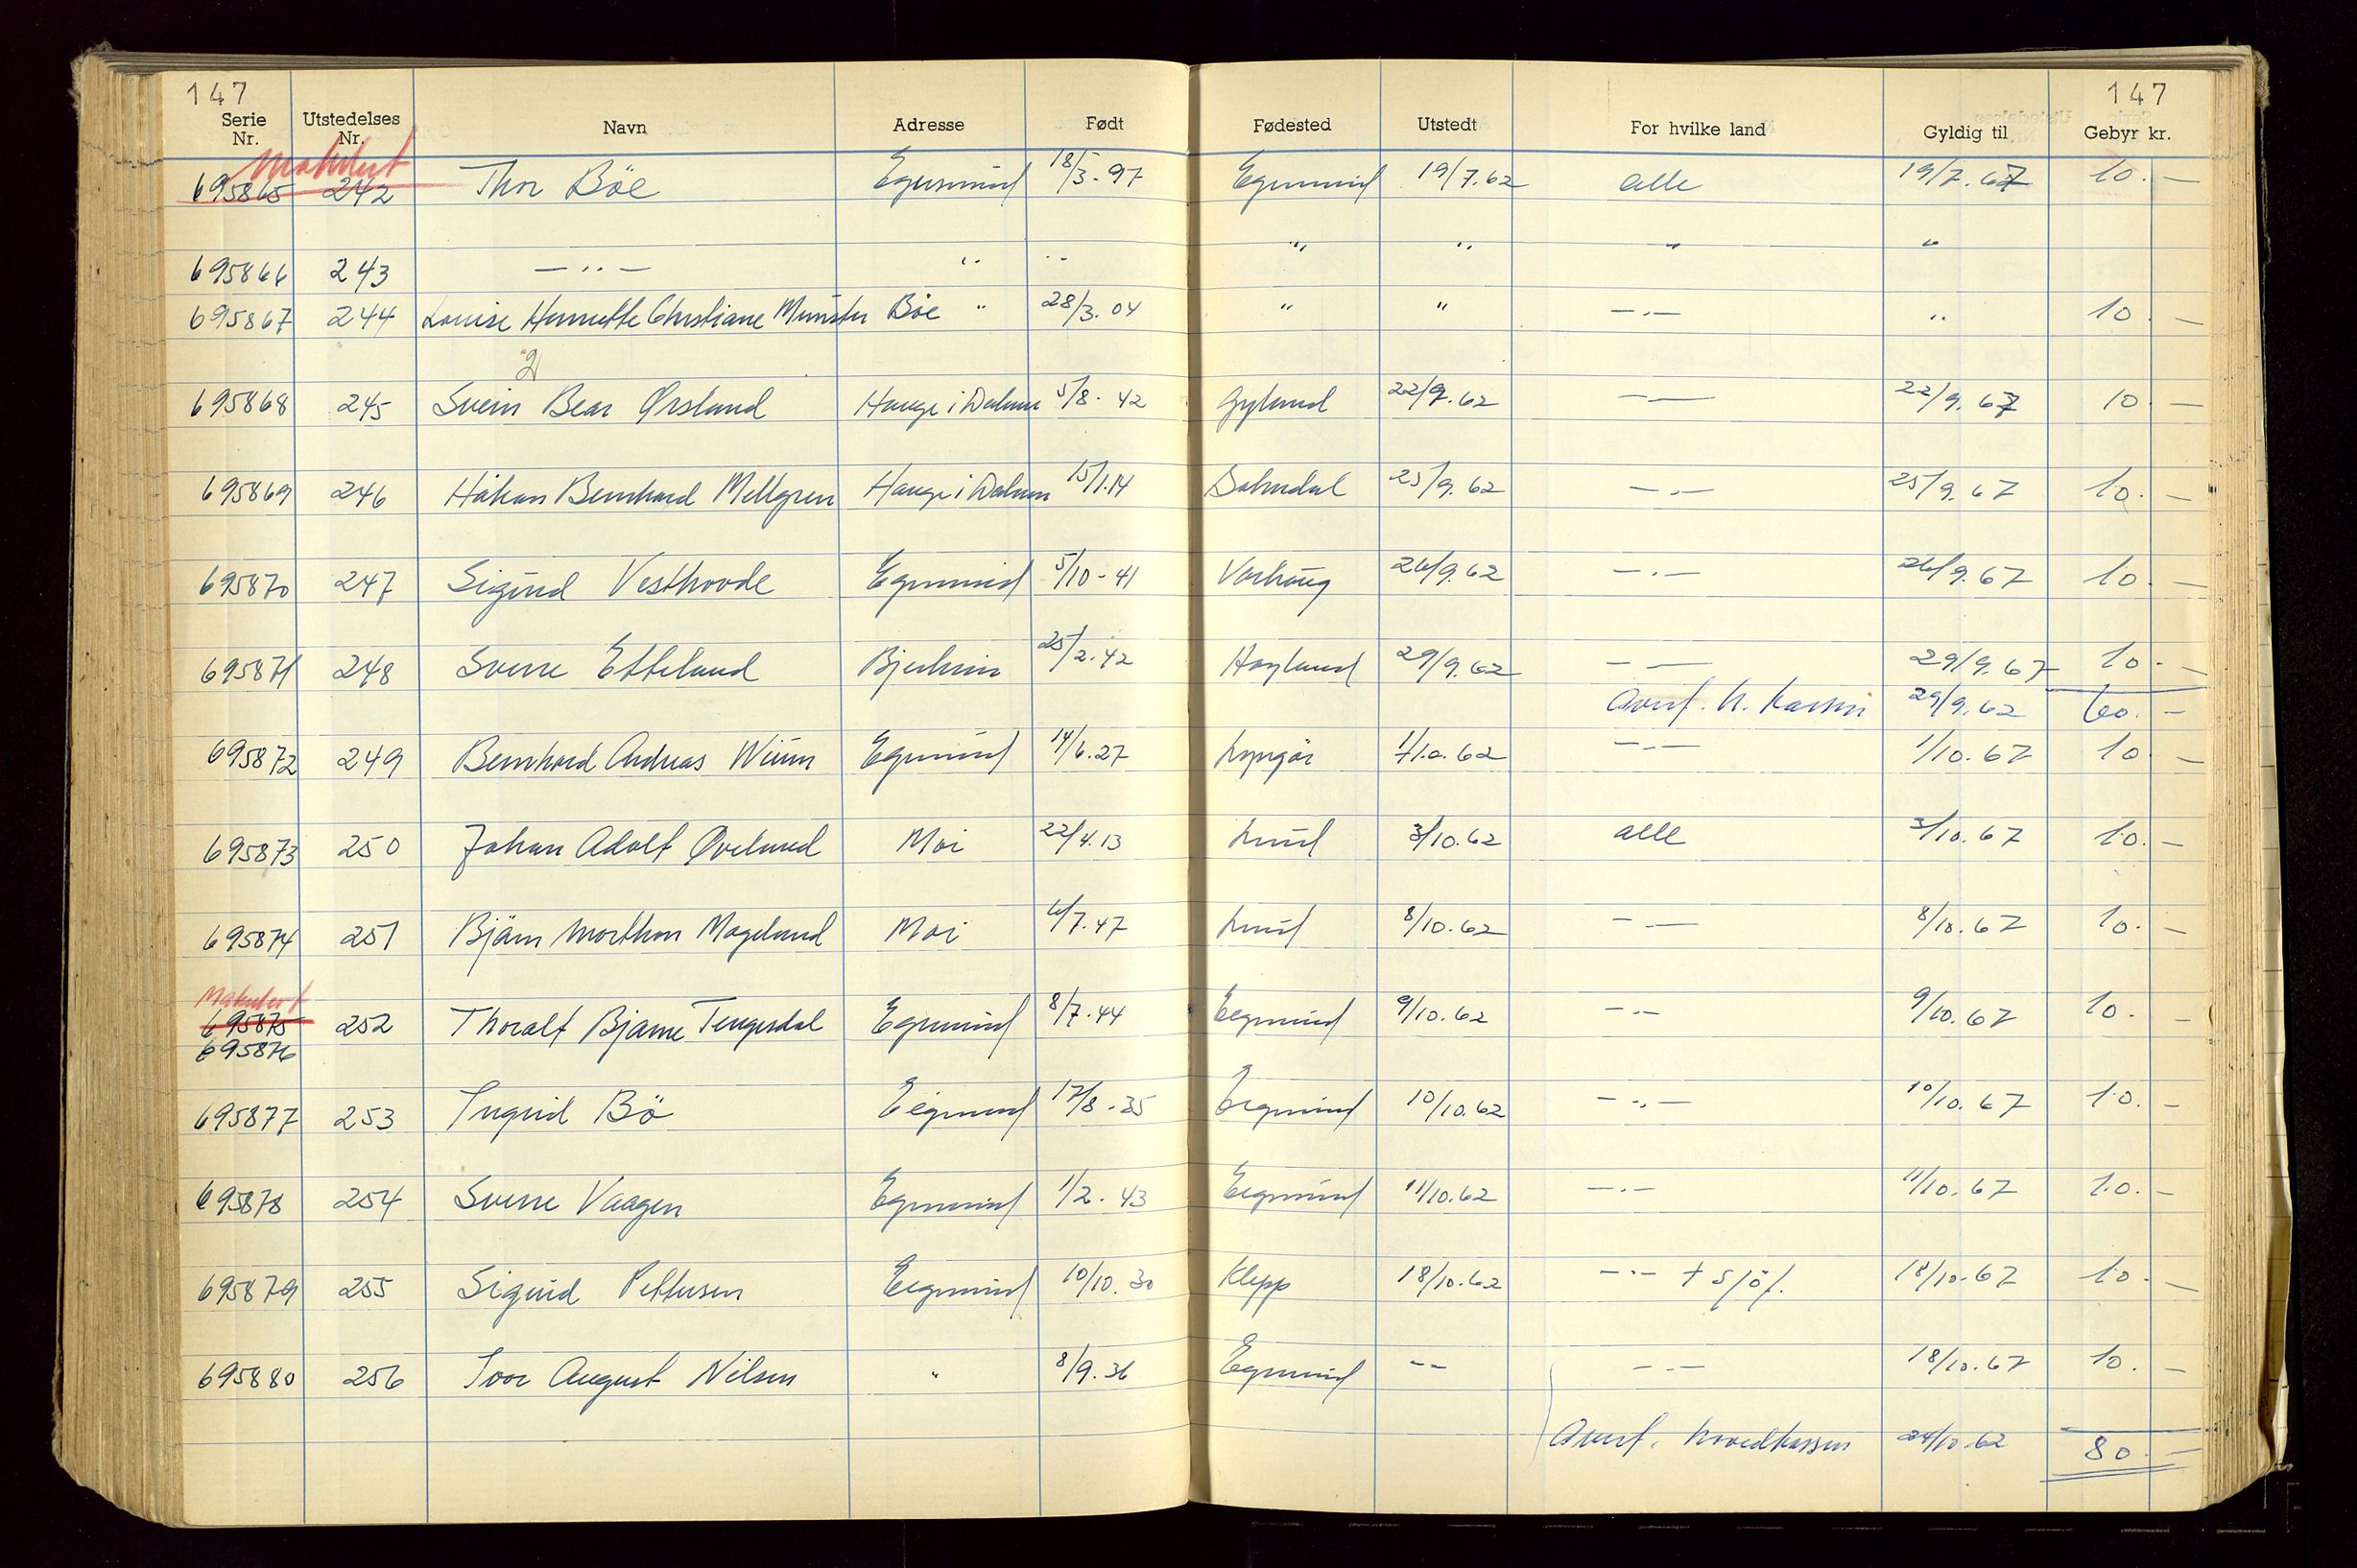 147 147
Serie Nr. Utstedelses Nr. Navn Adresse Født Fødested Utstedt For hvilke land Gyldig til Gebyr kr.
Makulert
695865 242 Thor Böe Egersund 18/3-97 Egersund 19/7.62 alle 19/7.67 10.-
695866 243 -"- " " " " " "
695867 244 Louise Henriette Christiane Münster Böe " 28/3.04 " " -"- " 10.-
695868 245 Svein Bear Ørsland Hauge i Dalane 5/8-42 Gyland 22/9.62 -- 22/9.67 10.-
695869 246 Håkan Bernhard Mellgren Hauge i Dalane 15/1.14 Sokndal 25/9.62 -"- 25/9.67 10.-
695870 247 Sigurd Vesthovde Egersund 5/10-41 Varhaug 26/9.62 -"- 26/9.67 10.-
695871 248 Sverre Etteland Bjerkreim 25/2.42 Høyland 29/9.62 -- 29/9.67 10.-
Overf. h. kassen 29/9.62 60.-
695872 249 Bernhard Andreas Egersund 14/6.27 Lyngør 1/10.62 -"- 1/10.67 10.-
695873 250 Johan Adolf Øvelund Moi 22/4.13 Lund 3/10.62 alle 3/10.67 10.-
695874 251 Bjårn Morthon Mogeland Moi 6/7.47 Lund 8/10.62 -- 8/10.67 10.-
Makulert
695875 252 Thoralf Bjarne Tengesdal Egersund 8/7.44 Eegersund 9/10.62 -"- 9/10.67 10.-
695876
695877 253 Ingrid Bö Eigersund 17/8-35 Eegersund 10/10.62 -"- 10/10.67 10.-
695878 254 Sverre Vaagen Egersund 1/2-43 Eegersund 11/10.62 -"- 11/10.67 10.-
695879 255 Sigurd Pettersen Eegersund 10/10.30 Klepp 18/10.62 -"- + sjöf. 18/10.67 10.-
695880 256 Ivar August Nilsen " 8/9.36 Egersund -- -"- 18/10.67 10.-
Overf. hovedkassen 24/10.62 80.-